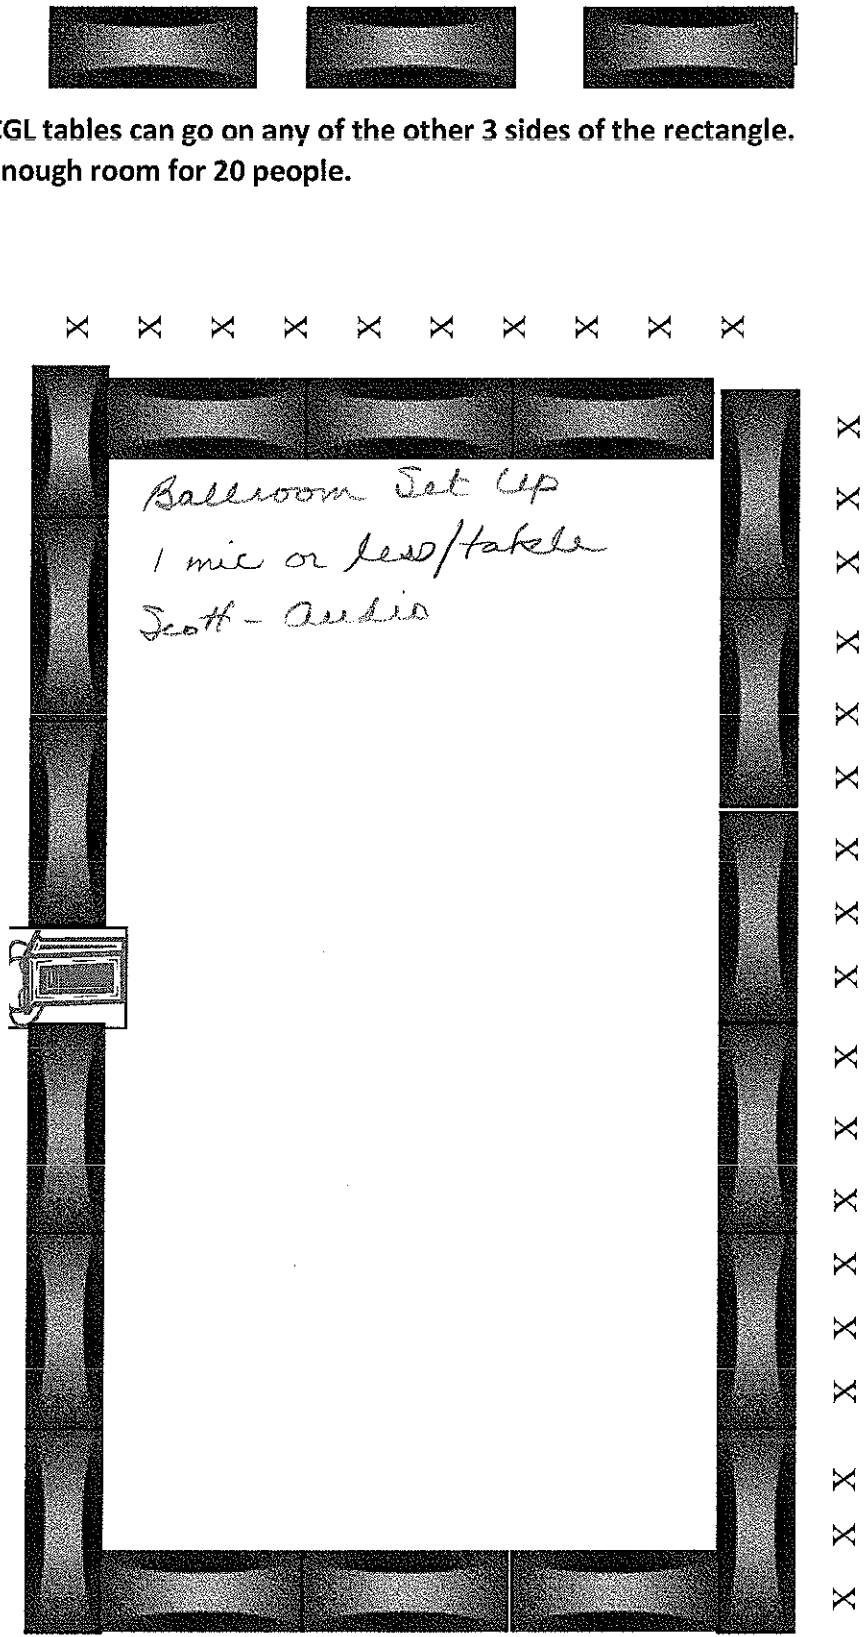 CGL tables can go on any of the other 3 sides of the rectangle.
nough room for 20 people.
X X X X X X X X X X
Ballroom Set Up
1 mic or less/table
Scott - Audio
X
X
X
X
X
X
X
X
X
X
X
X
X
X
X
X
X
X